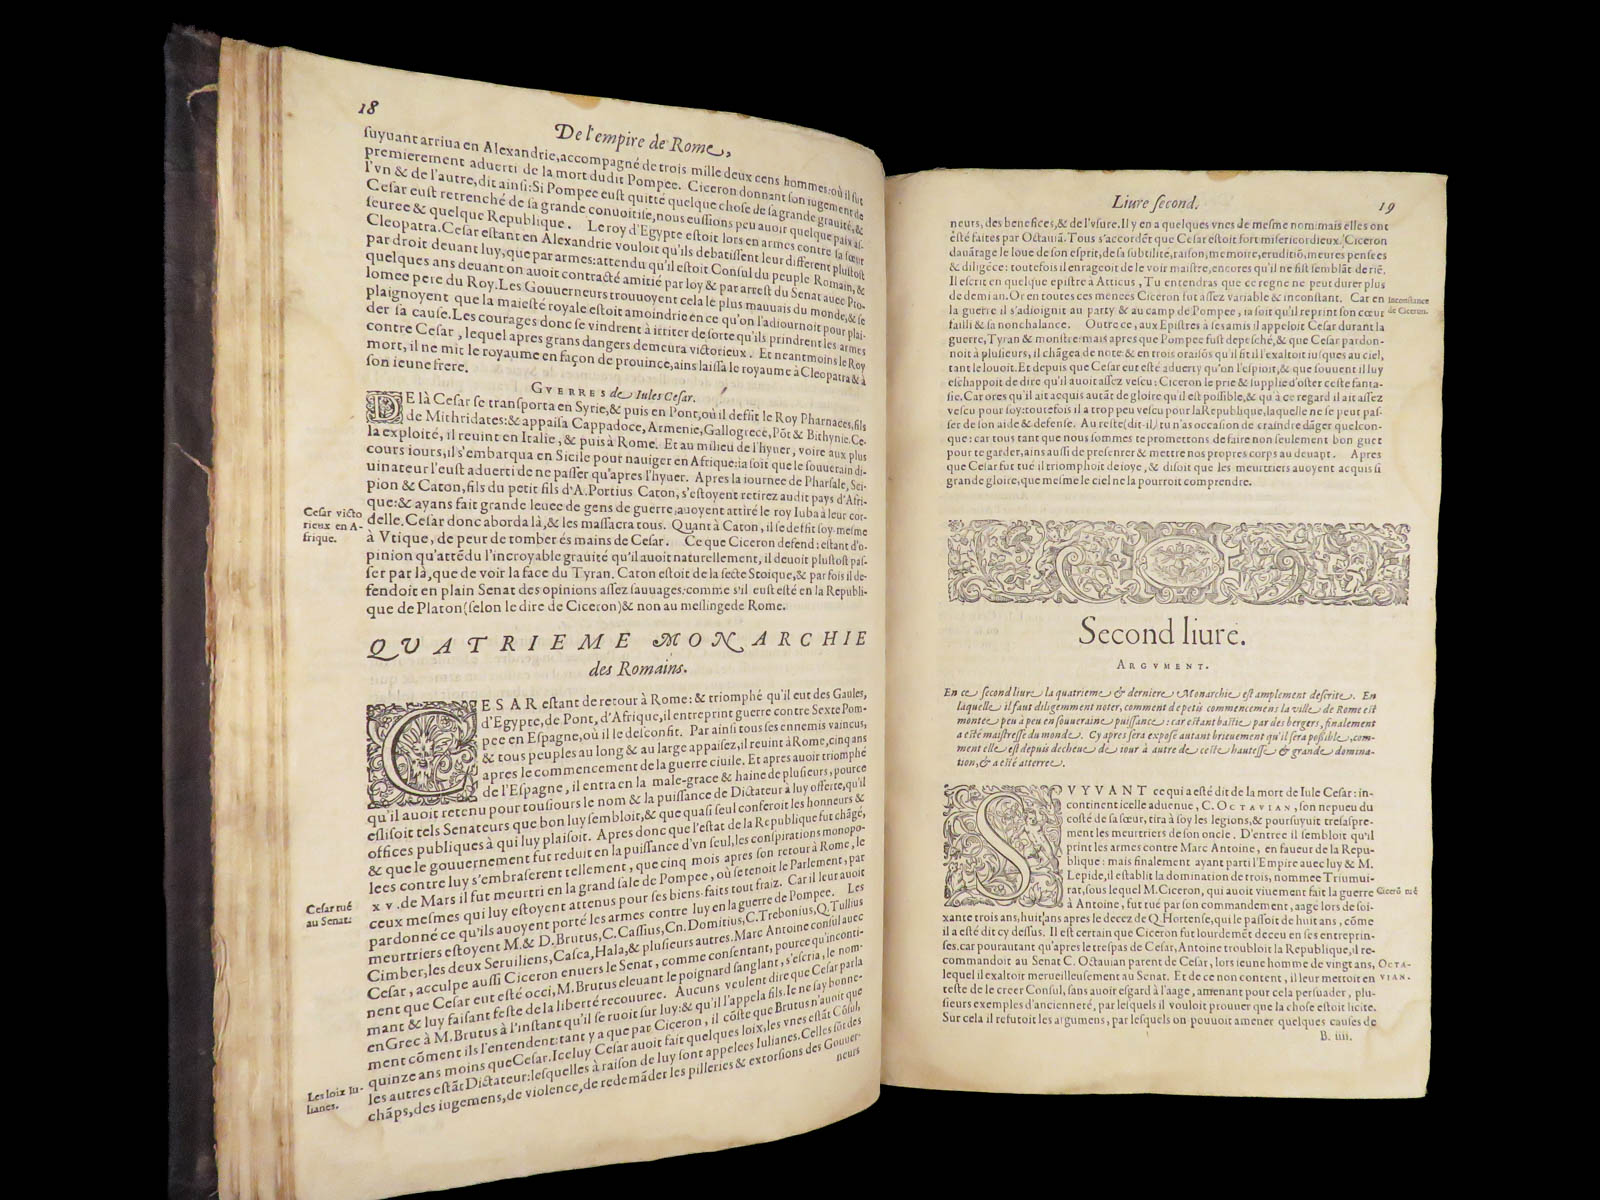 18
De l'empire de Rome,
ſuyuant arriua en Alexandrie, accompagné de trois mille deux cens hommes: où il fut
premierement aduerti de la mort dudit Pompee. Ciceron donnant ſon iugement de
l'vn & de l'autre, dit ainſi: Si Pompee euſt quitté quelque choſe de ſa grande grauité, &
Ceſar euſt retrenché de ſa grande conuoitiſe, nous euſſions peu auoir quelque paix aſ-
ſeuree & quelque Republique. Le roy d'Egypte eſtoit lors en armes contre ſa ſœur
Cleopatra. Ceſar eſtant en Alexandrie vouloit qu'ils debatiſſent leur different pluſtoſt
par droit deuant luy, que par armes: attendu qu'il eſtoit Conſul du peuple Romain, &
quelques ans deuant on auoit contracté amitié par loy & par arreſt du Senat auec Pto-
lomee pere du Roy. Les Gouuerneurs trouuoyent cela le plus mauuais du monde, & ſe
plaignoyent que la maieſté royale eſtoit amoindrie en ce qu'on l'adiournoit pour plai-
der ſa cauſe. Les courages donc ſe vindrent à irriter de ſorte qu'ils prindrent les armes
contre Ceſar, lequel apres grans dangers demeura victorieux. Et neantmoins le Roy
mort, il ne mit le royaume en façon de prouince, ains laiſſa le royaume à Cleopatra & à
ſon ieune frere.
GVERRES de Iules Ceſar.
DE là Ceſar ſe tranſporta en Syrie, & puis en Pont, où il deffit le Roy Pharnaces, fils
de Mithridates: & appaiſa Cappadoce, Armenie, Gallogrece, Pōt & Bithynie. Ce-
la exploité, il reuint en Italie, & puis à Rome. Et au milieu de l'hyuer, voire aux plus
cours iours, il s'embarqua en Sicile pour nauiger en Afrique: ia ſoit que le ſouuerain di-
uinateur l'euſt aduerti de ne paſſer qu'apres l'hyuer. Apres la iournee de Pharſale, Sci-
pion & Caton, fils du petit fils d'A. Portius Caton, s'eſtoyent retirez audit pays d'Afri-
que: & ayans fait grande leuee de gens de guerre, auoyent attiré le roy Iuba à leur cor-
Ceſar victo
rieux en A-
frique.
delle. Ceſar donc aborda là, & les maſſacra tous. Quant à Caton, il ſe deffit ſoy-meſme
à Vtique, de peur de tomber és mains de Ceſar. Ce que Ciceron defend: eſtant d'o-
pinion qu'attēdu l'incroyable grauité qu'il auoit naturellement, il deuoit pluſtoſt paſ-
ſer par là, que de voir la face du Tyran. Caton eſtoit de la ſecte Stoique, & par fois il de-
fendoit en plain Senat des opinions aſſez ſauuages: comme s'il euſt eſté en la Republi-
que de Platon (ſelon le dire de Ciceron) & non au meſlinge de Rome.
QVATRIEME MONARCHIE
des Romains.
CESAR eſtant de retour à Rome: & triomphé qu'il eut des Gaules,
d'Egypte, de Pont, d'Afrique, il entreprint guerre contre Sexte Pom-
pee en Eſpagne, où il le deſconfit. Par ainſi tous ſes ennemis vaincus,
& tous peuples au long & au large appaiſez, il reuint à Rome, cinq ans
apres le commencement de la guerre ciuile. Et apres auoir triomphé
de l'Eſpagne, il entra en la male-grace & haine de pluſieurs, pource
qu'il auoit retenu pour touſiours le nom & la puiſſance de Dictateur à luy offerte, qu'il
eſliſoit tels Senateurs que bon luy ſembloit, & que quaſi ſeul conferoit les honneurs &
offices publiques à qui luy plaiſoit. Apres donc que l'eſtat de la Republique fut chāgé,
& que le gouuernement fut reduit en la puiſſance d'vn ſeul, les conſpirations monopo-
lees contre luy s'embraſerent tellement, que cinq mois apres ſon retour à Rome, le
Ceſar tué
au Senat.
xv. de Mars il fut meurtri en la grand' ſale de Pompee, où ſe tenoit le Parlement, par
ceux meſmes qui luy eſtoyent attenus pour ſes biens-faits tout fraiz. Car il leur auoit
pardonné ce qu'ils auoyent porté les armes contre luy en la guerre de Pompee. Les
meurtriers eſtoyent M. & D. Brutus, C. Caſſius, Cn. Domitius, C. Trebonius, Q. Tullius
Cimber, les deux Seruiliens, Caſca, Hala, & pluſieurs autres. Marc Antoine conſul auec
Ceſar, acculpe auſſi Ciceron enuers le Senat, comme conſentant, pource qu'inconti-
nent que Ceſar eut eſté occi, M. Brutus eleuant le poignard ſanglant, s'eſcria, le nom-
mant & luy faiſant feſte de la liberté recouuree. Aucuns veulent dire que Ceſar parla
en Grec à M. Brutus à l'inſtant qu'il ſe ruoit ſur luy: & qu'il l'appela fils. Ie ne ſay bonne-
ment cōment ils l'entendent: tant y a que par Ciceron, il cōſte que Brutus n'auoit que
quinze ans moins que Ceſar. Iceluy Ceſar auoit fait quelques loix, les vnes eſtāt Cōſul,
Les loix Iu-
lianes.
les autres eſtāt Dictateur: leſquelles à raiſon de luy ſont appelees Iulianes. Celles ſōt des
chāps, des iugemens, de violence, de redemāder les pilleries & extorſions des Gouuer-
neurs
Liure ſecond.
19
neurs, des benefices, & de l'vſure. Il y en a quelques vnes de meſme nom: mais elles ont
eſté faites par Octauiā. Tous s'accordēt que Ceſar eſtoit fort miſericordieux. Ciceron
dauātage le loue de ſon eſprit, de ſa ſubtilité, raiſon, memoire, eruditiō, meures penſees
& diligēce: toutefois il enrageoit de le voir maiſtre, encores qu'il ne fiſt ſemblāt de riē.
Il eſcrit en quelque epiſtre à Atticus, Tu entendras que ce regne ne peut durer plus
de demi an. Or en toutes ces menees Ciceron fut aſſez variable & inconſtant. Car en
Inconſtance
de Ciceron.
la guerre il s'adioignit au party & au camp de Pompee, ia ſoit qu'il reprint ſon cœur
failli & ſa nonchalance. Outre ce, aux Epiſtres à ſes amis il appeloit Ceſar durant la
guerre, Tyran & monſtre: mais apres que Pompee fuſt depeſché, & que Ceſar pardon-
noit à pluſieurs, il chāgea de note: & en trois oraiſōs qu'il fit il l'exaltoit iuſques au ciel,
tant le louoit. Et depuis que Ceſar eut eſté aduerty qu'on l'eſpioit, & que ſouuent il luy
eſchappoit de dire qu'il auoit aſſez veſcu: Ciceron le prie & ſupplie d'oſter ceſte fanta-
ſie. Car ores qu'il ait acquis autāt de gloire qu'il eſt poſſible, & qu'à ce regard il ait aſſez
veſcu pour ſoy: toutefois il a trop peu veſcu pour la Republique, laquelle ne ſe peut paſ-
ſer de ſon aide & defenſe. Au reſte (dit-il) tu n'as occaſion de craindre dāger quelcon-
que: car tous tant que nous ſommes te promettons de faire non ſeulement bon guet
pour te garder, ains auſſi de preſenter & mettre nos propres corps au deuāt. Apres
que Ceſar fut tué il triomphoit de ioye, & diſoit que les meurtriers auoyent acquis ſi
grande gloire, que meſme le ciel ne la pourroit comprendre.
Second liure.
ARGVMENT.
En ce ſecond liure la quatrieme & derniere Monarchie eſt amplement deſcrite. En
laquelle il faut diligemment noter, comment depetis commencemens la ville de Rome eſt
montee peu à peu en ſouueraine puiſſance: car eſtant baſtie par des bergers, finalement
a eſté maiſtreſſe du monde. Cy apres ſera expoſé autant brieuement qu'il ſera poßible, com-
ment elle eſt depuis decheue de iour à autre de ceſte hauteſſe & grande domina-
tion, & a eſté atterree.
SVYVANT ce qui a eſté dit de la mort de Iule Ceſar: in-
continent icelle aduenue, C. OCTAVIAN, ſon nepueu du
coſté de ſa ſœur, tira à ſoy les legions, & pourſuyuit treſaſpre-
ment les meurtriers de ſon oncle. D'entree il ſembloit qu'il
print les armes contre Marc Antoine, en faueur de la Repu-
blique: mais finalement ayant parti l'Empire auec luy & M.
Lepide, il eſtablit la domination de trois, nommee Triumui-
rat, ſous lequel M. Ciceron, qui auoit viuement fait la guerre
Cicerō tué
à Antoine, fut tué par ſon commandement, aagé lors de ſoi-
xante trois ans, huit ans apres le decez de Q. Hortenſe, qui le paſſoit de huit ans, cōme
il a eſté dit cy deſſus. Il eſt certain que Ciceron fut lourdemēt deceu en ſes entreprin-
ſes. car pourautant qu'apres le treſpas de Ceſar, Antoine troubloit la Republique, il re-
commandoit au Senat C. Octauian parent de Ceſar, lors ieune homme de vingt ans,
OCTA-
VIAN.
lequel il exaltoit merueilleuſement au Senat. Et de ce non content, il leur mettoit en
teſte de le creer Conſul, ſans auoir eſgard à l'aage, amenant pour cela perſuader, plu-
ſieurs exemples d'ancienneté, par leſquels il vouloit prouuer que la choſe eſtoit licite.
Sur cela il refutoit les argumens, par leſquels on pouuoit amener quelques cauſes de
B. iiii.